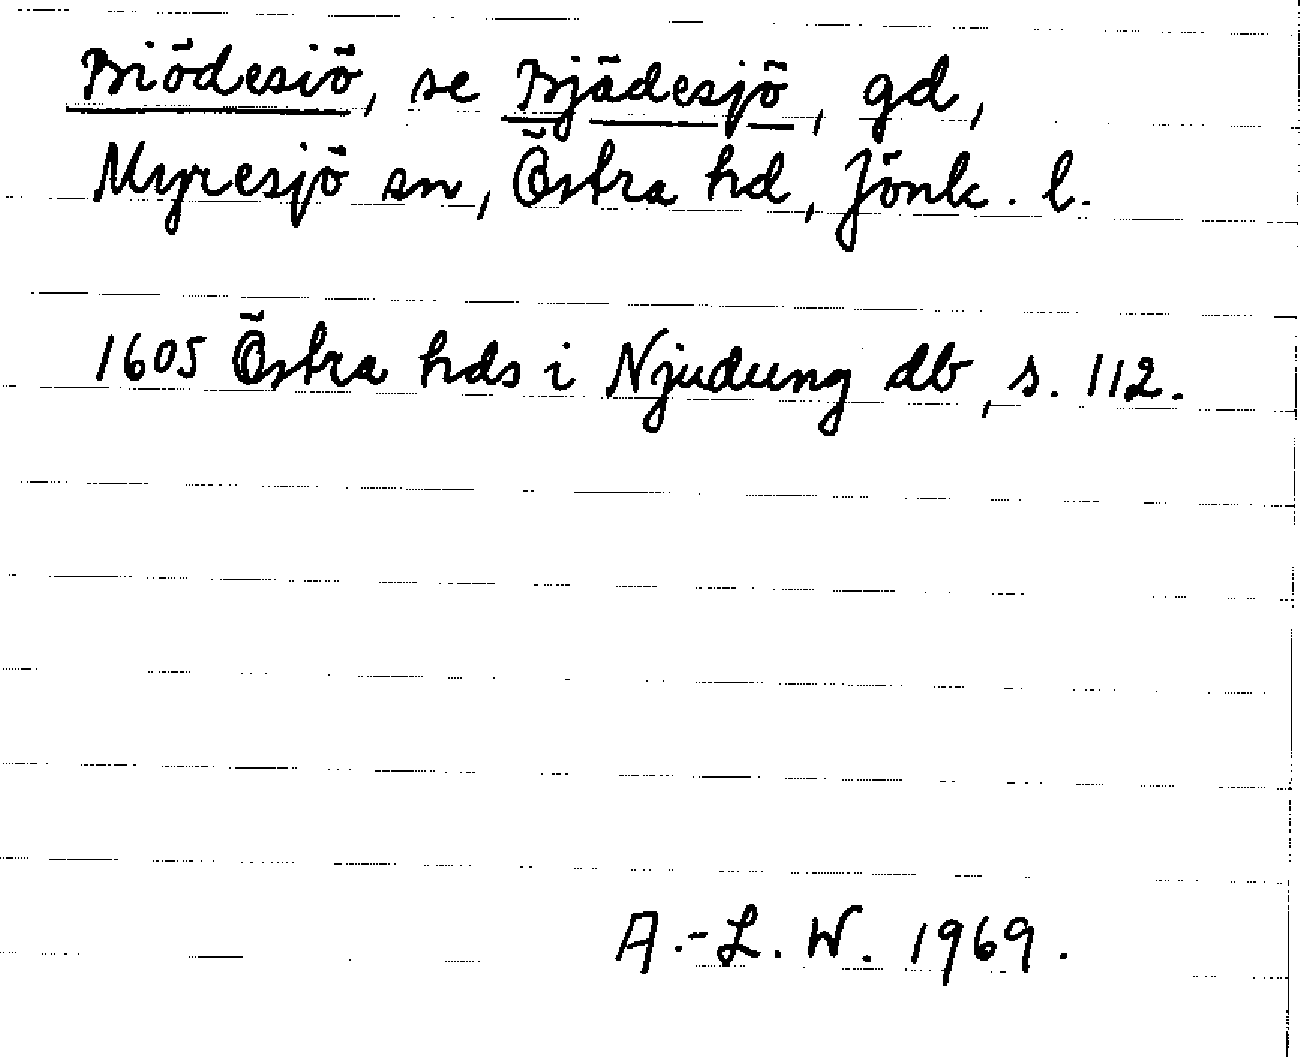 Biödesiö, se Bjädesjö, gd,
Myresjö sn, Östra hd, Jönk. l.
1605 Östra hds i Njudung db, s. 112.
A.-L. W. 1969.